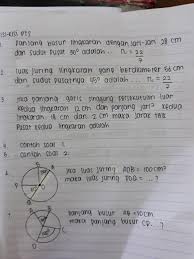 KISI-KISI PTS
1 Panjang busur lingkaran dengan jari-jari 28 cm
dan sudut pusat 45° adalah .. π = 22/7
2 luas juring lingkaran yang berdiameter 56 cm
dan sudut pusatnya 45° adalah ... π = 22/7
3 Jika panjang garis singgung persekutuan luar
kedua lingkaran 12 cm dan panjang jari² kedua
lingkaran 18 cm dan 2 cm maka jarak titik
Pusat kedua lingkaran adalah
4 contoh soal 1
5 contoh soal 2
Jika luas juring AOB = 100 cm²
maka luas juring POQ = ... ?
7
panjang busur AB = 100 cm
maka panjang busur CD. ?